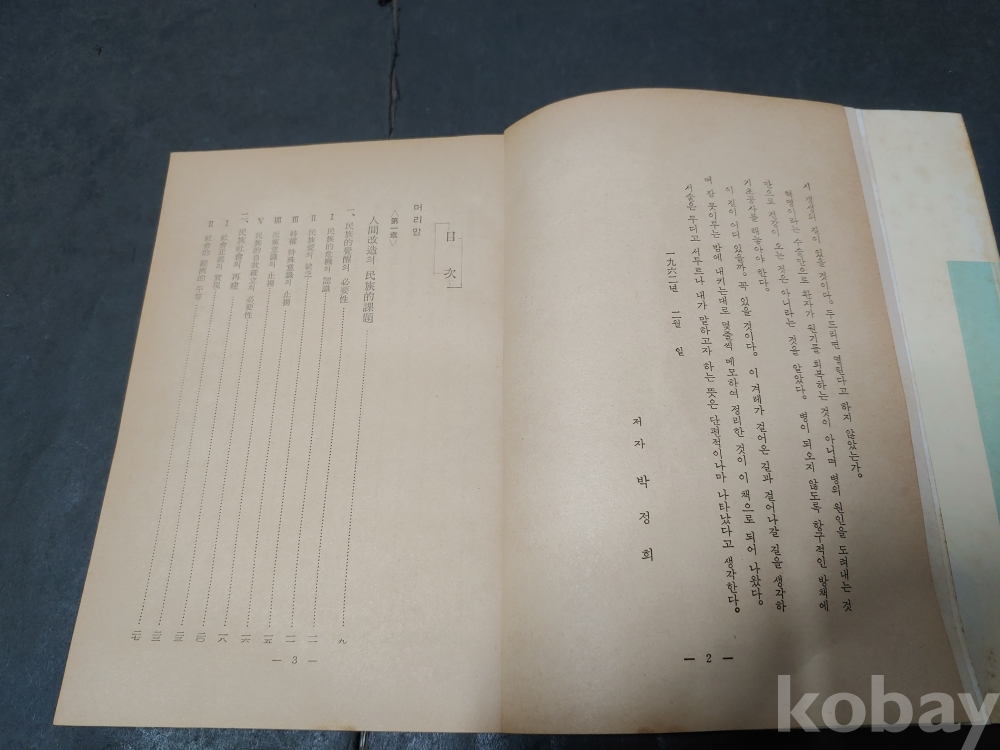 서 갱생의 길이 있을 것이다. 두드리면 열린다고 하지 않았는가.
혁명이라는 수술만으로 환자가 원기를 회복하는 것이 아니며 병의 원인을 도려내는 것
만으로 건강이 오는 것은 아니라는 것을 알았다. 병이 되오지 않도록 항구적인 방책에
기초공사를 해놓아야 한다.
이 길이 어디 있을까. 꼭 있을 것이다. 이 겨레가 걸어온 길과 걸어나갈 길을 생각하
며 잠 못이루는 밤에 내키는대로 몇줄씩 메모하여 정리한 것이 이 책으로 되어 나왔다.
서술은 무디고 서투르나 내가 말하고자 하는 뜻은 단편적이나마 나타났다고 생각한다.
一九六二년 二월 일
저자 박정희
— 2 —
目次
머리말
<第一章>
人間改造의 民族的課題
一、民族的覺醒의 必要性 九
I 民族的危機의 認識
II 民族愛의 缺乏
III 特權・特殊意識의 止揚
III 民族意識의 止揚 一五
V 民族的自我確立의 必要性 一六
二、民族社會의 再建 一八
I 社會正義의 實現 二〇
II 社會的 經濟的 平等
— 3 —
kobay